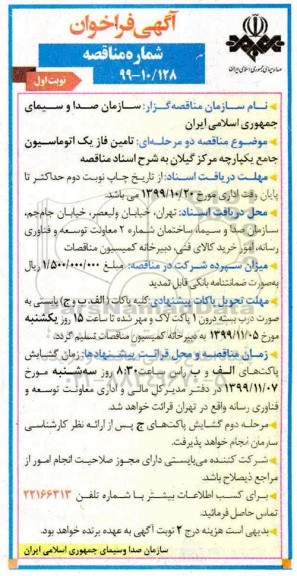 آگهی فراخوان
شماره مناقصه
۹۹-۱۰/۱۲۸
نوبت اول
صدا و سیمای جمهوری اسلامی ایران
نام سازمان مناقصه‌گزار: سازمان صدا و سیمای
جمهوری اسلامی ایران
موضوع مناقصه دو مرحله‌ای: تامین فاز یک اتوماسیون
جامع یکپارچه مرکز گیلان به شرح اسناد مناقصه
مهلت دریافت اسناد: از تاریخ چاپ نوبت دوم حداکثر تا
پایان وقت اداری مورخ ۱۳۹۹/۱۰/۲۰ می باشد.
محل دریافت اسناد: تهران، خیابان ولیعصر، خیابان جام‌جم،
سازمان صدا و سیما، ساختمان شماره ۲ معاونت توسعه و فناوری
رسانه، امور خرید کالای فنی، دبیرخانه کمیسیون مناقصات
میزان سپرده شرکت در مناقصه: مبلغ ۱/۵۰۰/۰۰۰/۰۰۰ ریال
به‌صورت ضمانتنامه بانکی قابل تمدید
مهلت تحویل پاکات پیشنهادی: کلیه پاکات (الف، ب و ج) بایستی به
صورت درب بسته درون ۱ پاکت لاک و مهر شده تا ساعت ۱۵ روز یکشنبه
مورخ ۱۳۹۹/۱۱/۰۵ به دبیرخانه کمیسیون مناقصات تسلیم گردد.
زمان مناقصه و محل قرائت پیشنهادها: زمان گشایش
پاکت‌های الف و ب راس ساعت ۸:۳۰ روز سه‌شنبه مورخ
۱۳۹۹/۱۱/۰۷ در دفتر مدیرکل مالی و اداری معاونت توسعه و
فناوری رسانه واقع در تهران قرائت خواهد شد.
مرحله دوم گشایش پاکت‌های ج پس از ارائه نظر کارشناسی
سازمان انجام خواهد پذیرفت.
شرکت کننده می‌بایستی دارای مجوز صلاحیت انجام امور از
مراجع ذیصلاح باشد.
برای کسب اطلاعات بیشتر با شماره تلفن ۲۲۱۶۶۳۱۳
تماس حاصل فرمائید.
بدیهی است هزینه درج ۲ نوبت آگهی به عهده برنده خواهد بود.
سازمان صدا وسیمای جمهوری اسلامی ایران